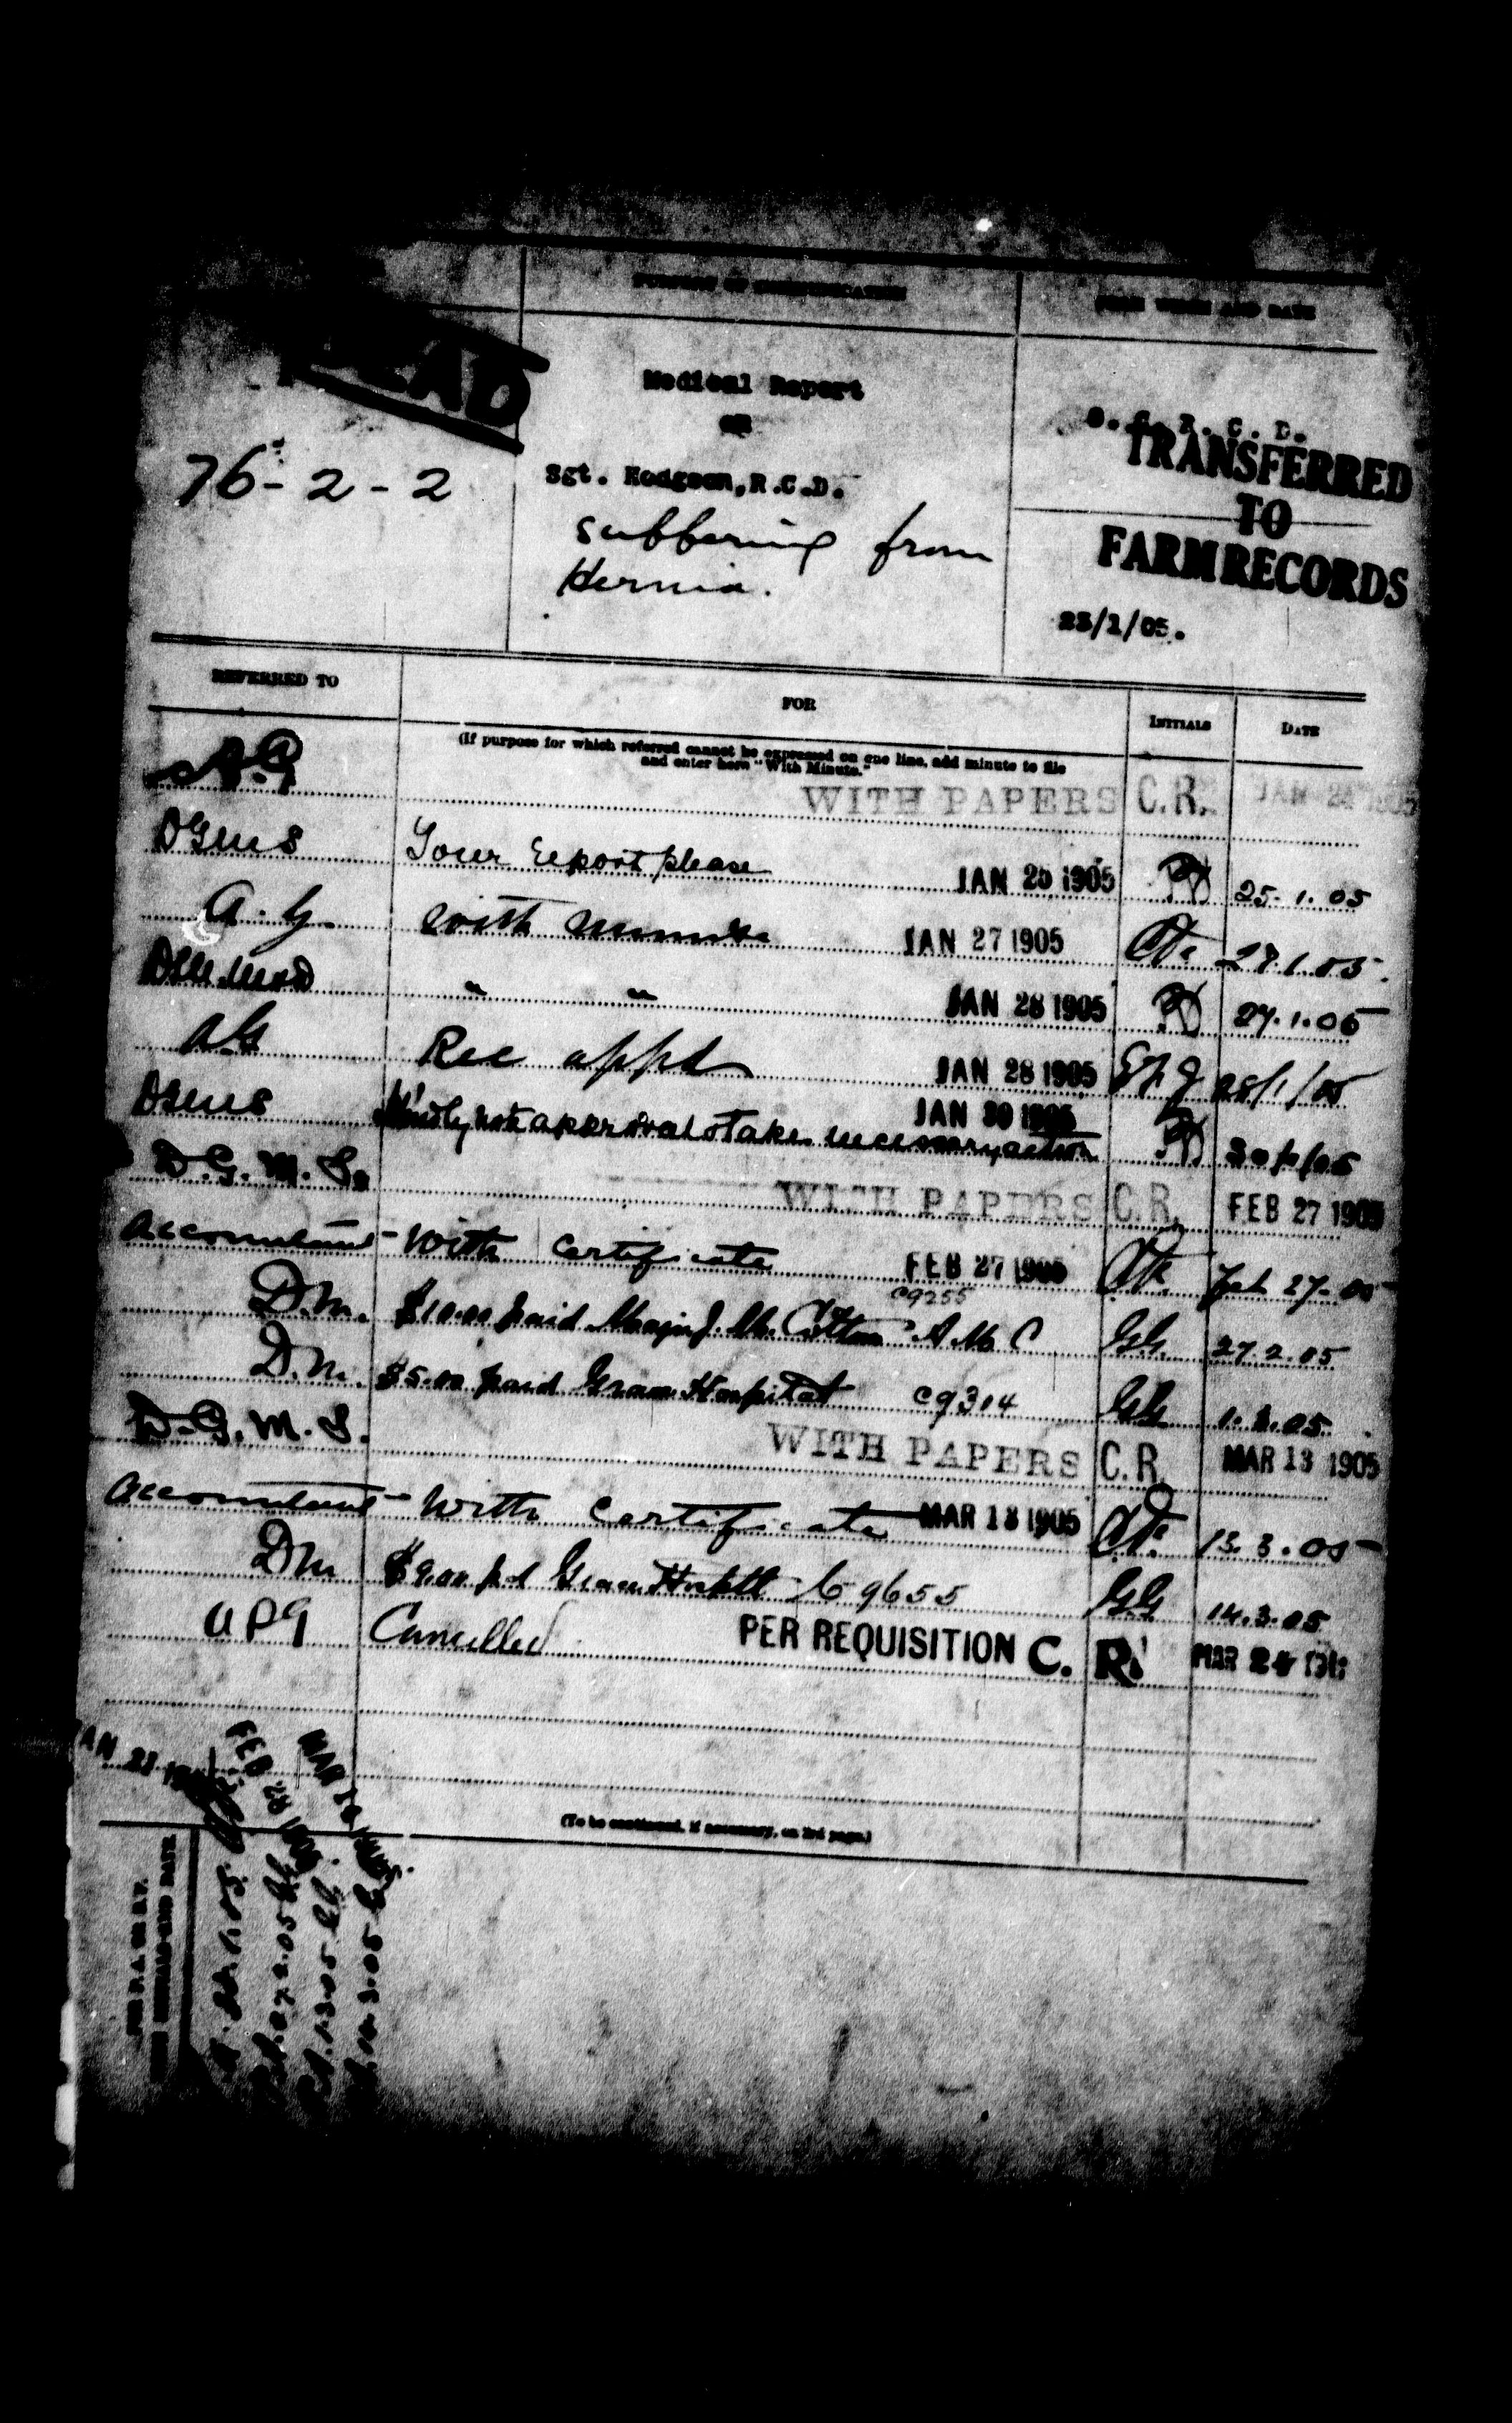 PURPORT OF COMMUNICATION
FROM WHOM AND DATE
76-2-2
Medical Report
on
Sgt. Hodgson, R.C.D.
suffering from
Hernia.
O. C. R. C. D.
TRANSFERRED
TO
FARM RECORDS
23/1/05.
REFERRED TO FOR INITIALS DATE
(If purpose for which referred cannot be expressed on one line, add minute to file
and enter here "With Minute."
A.G WITH PAPERS C.R. JAN 24 1905
DGMS Your report please JAN 25 1905 25.1.05
A.G. With minute JAN 27 1905 27.1.05
" " JAN 28 1905 27.1.05
AG Rec appd JAN 28 1905 28/1/05
DGMS Kindly note approval & take necessary action JAN 30 1905 30/1/05
D.G.M.S. WITH PAPERS C.R. FEB 27 1905
Accountant With Certificate FEB 27 1905 Feb 27-05
C9255
D.M. $10.00 paid Major J. M. Cotton A M C G.G. 27.2.05
D.M. $5.00 paid Grace Hospital C9304 G.G. 1.3.05
D.G.M.S. WITH PAPERS C.R. MAR 13 1905
Accountant With Certificate MAR 13 1905 13.3.05
DM $9.00 pd Grace Hospitl C 9655 G.G 14.3.05
Cancelled PER REQUISITION C. R. MAR 24
(To be continued, if necessary, on 3rd page.)
FOR P.A. OR B.F.
WITH INITIALS AND DATE
FEB 28 1905